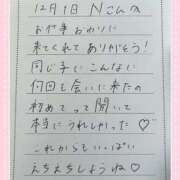 12月1日 Nこんの
お仕事おわりに
来てくれてありがそう!
同じ子にこんなに
何回も会いに来たの
初めてって聞いて
本当にうれしかった♡
これからもいっぱい
えちえちしようね♡